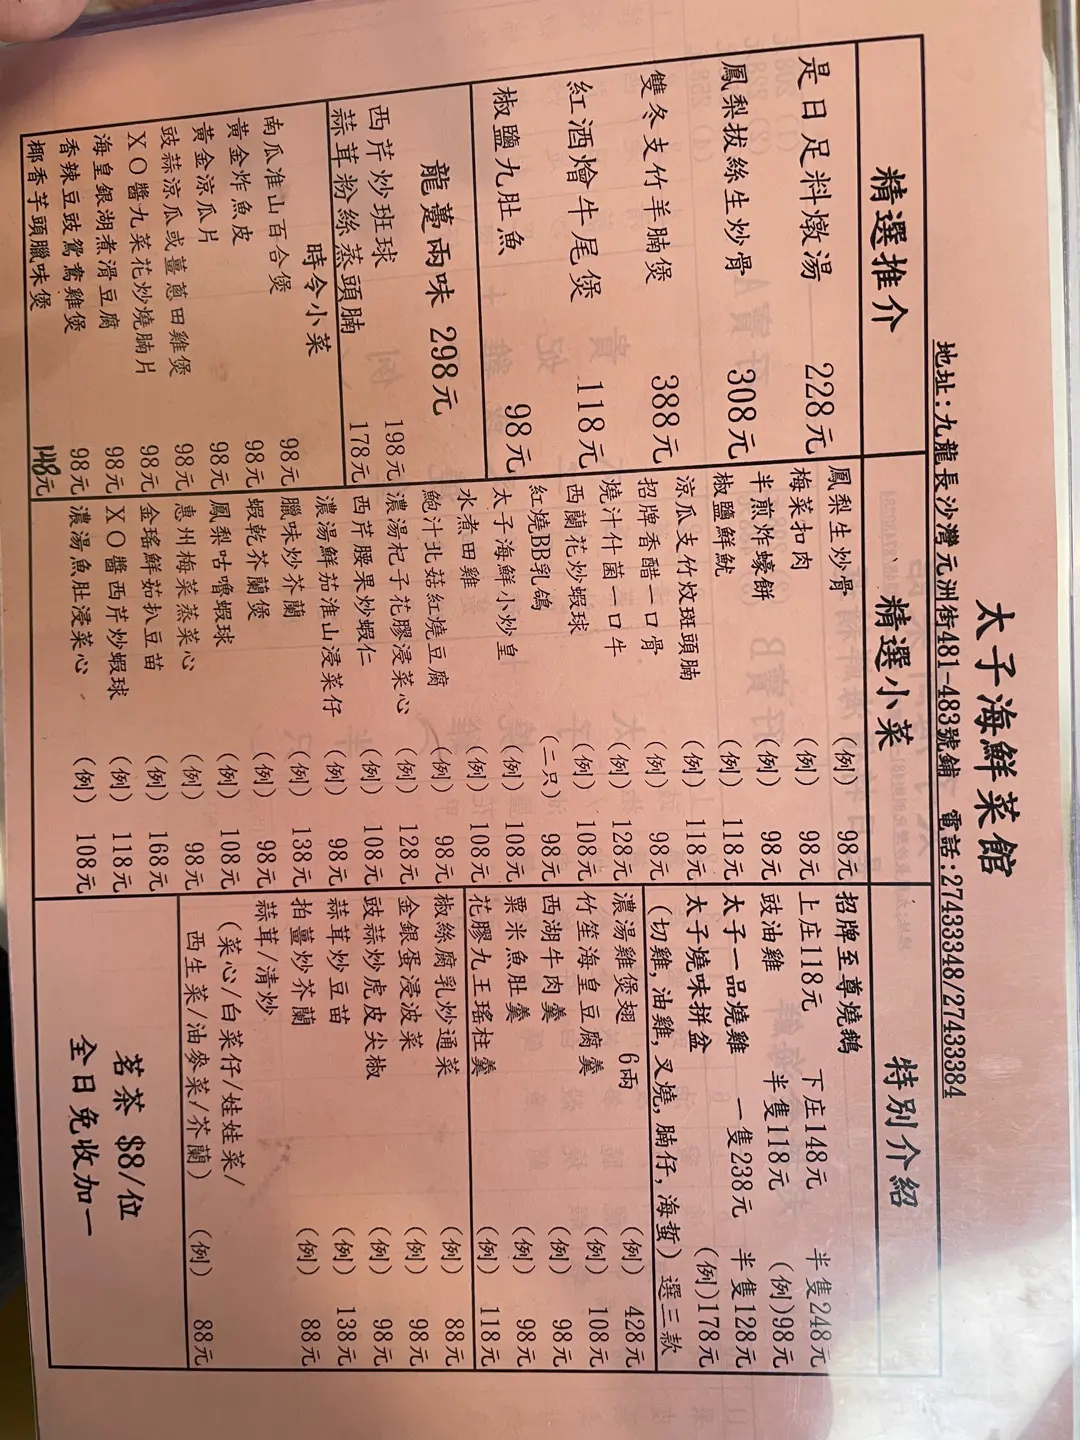 太子海鮮菜館
地址:九龍長沙灣元洲街481-483號舖 電話:27433348/27433384
精選推介
是日足料燉湯 228元
鳳梨拔絲生炒骨 308元
雙冬支竹羊腩煲 388元
紅酒燴牛尾煲 118元
椒鹽九肚魚 98元
龍躉兩味 298元
西芹炒班球 198元
蒜茸粉絲蒸頭腩 178元
時令小菜
南瓜淮山百合煲 98元
黃金炸魚皮 98元
黃金涼瓜片 98元
豉蒜涼瓜或薑蔥田雞煲 98元
XO醬九菜花炒燒腩片 98元
海皇銀湖煮滑豆腐 98元
香辣豆豉鴛鴦雞煲 98元
椰香芋頭臘味煲 148元
精選小菜
鳳梨生炒骨 (例) 98元
梅菜扣肉 (例) 98元
半煎炸蠔餅 (例) 98元
椒鹽鮮魷 (例) 118元
涼瓜支竹炆斑頭腩 (例) 118元
招牌香醋一口骨 (例) 98元
燒汁什菌一口牛 (例) 128元
西蘭花炒蝦球 (例) 108元
紅燒BB乳鴿 (二只) 98元
太子海鮮小炒皇 (例) 108元
水煮田雞 (例) 108元
鮑汁北菇紅燒豆腐 (例) 98元
濃湯杞子花膠浸菜心 (例) 128元
西芹腰果炒蝦仁 (例) 108元
濃湯鮮茄淮山浸菜仔 (例) 98元
臘味炒芥蘭 (例) 138元
蝦乾芥蘭煲 (例) 98元
鳳梨咕嚕蝦球 (例) 108元
惠州梅菜蒸菜心 (例) 98元
金瑤鮮茄扒豆苗 (例) 168元
XO醬西芹炒蝦球 (例) 118元
濃湯魚肚浸菜心 (例) 108元
特別介紹
招牌至尊燒鵝 半隻248元
上庄118元 下庄148元 (例)98元
豉油雞 半隻118元 半隻128元
太子一品燒雞 一隻238元
太子燒味拼盆 (例)178元
(切雞,油雞,叉燒,腩仔,海蜇) 選三款
濃湯雞煲翅 6兩 (例) 428元
竹笙海皇豆腐羹 (例) 108元
西湖牛肉羹 (例) 98元
粟米魚肚羹 (例) 98元
花膠九王瑤柱羹 (例) 118元
椒絲腐乳炒通菜 (例) 88元
金銀蛋浸波菜 (例) 98元
豉蒜炒虎皮尖椒 (例) 98元
蒜茸炒豆苗 (例) 138元
拍薑炒芥蘭 (例) 88元
蒜茸/清炒
(菜心/白菜仔/娃娃菜/
西生菜/油麥菜/芥蘭) (例) 88元
茗茶 $8/位
全日免收加一